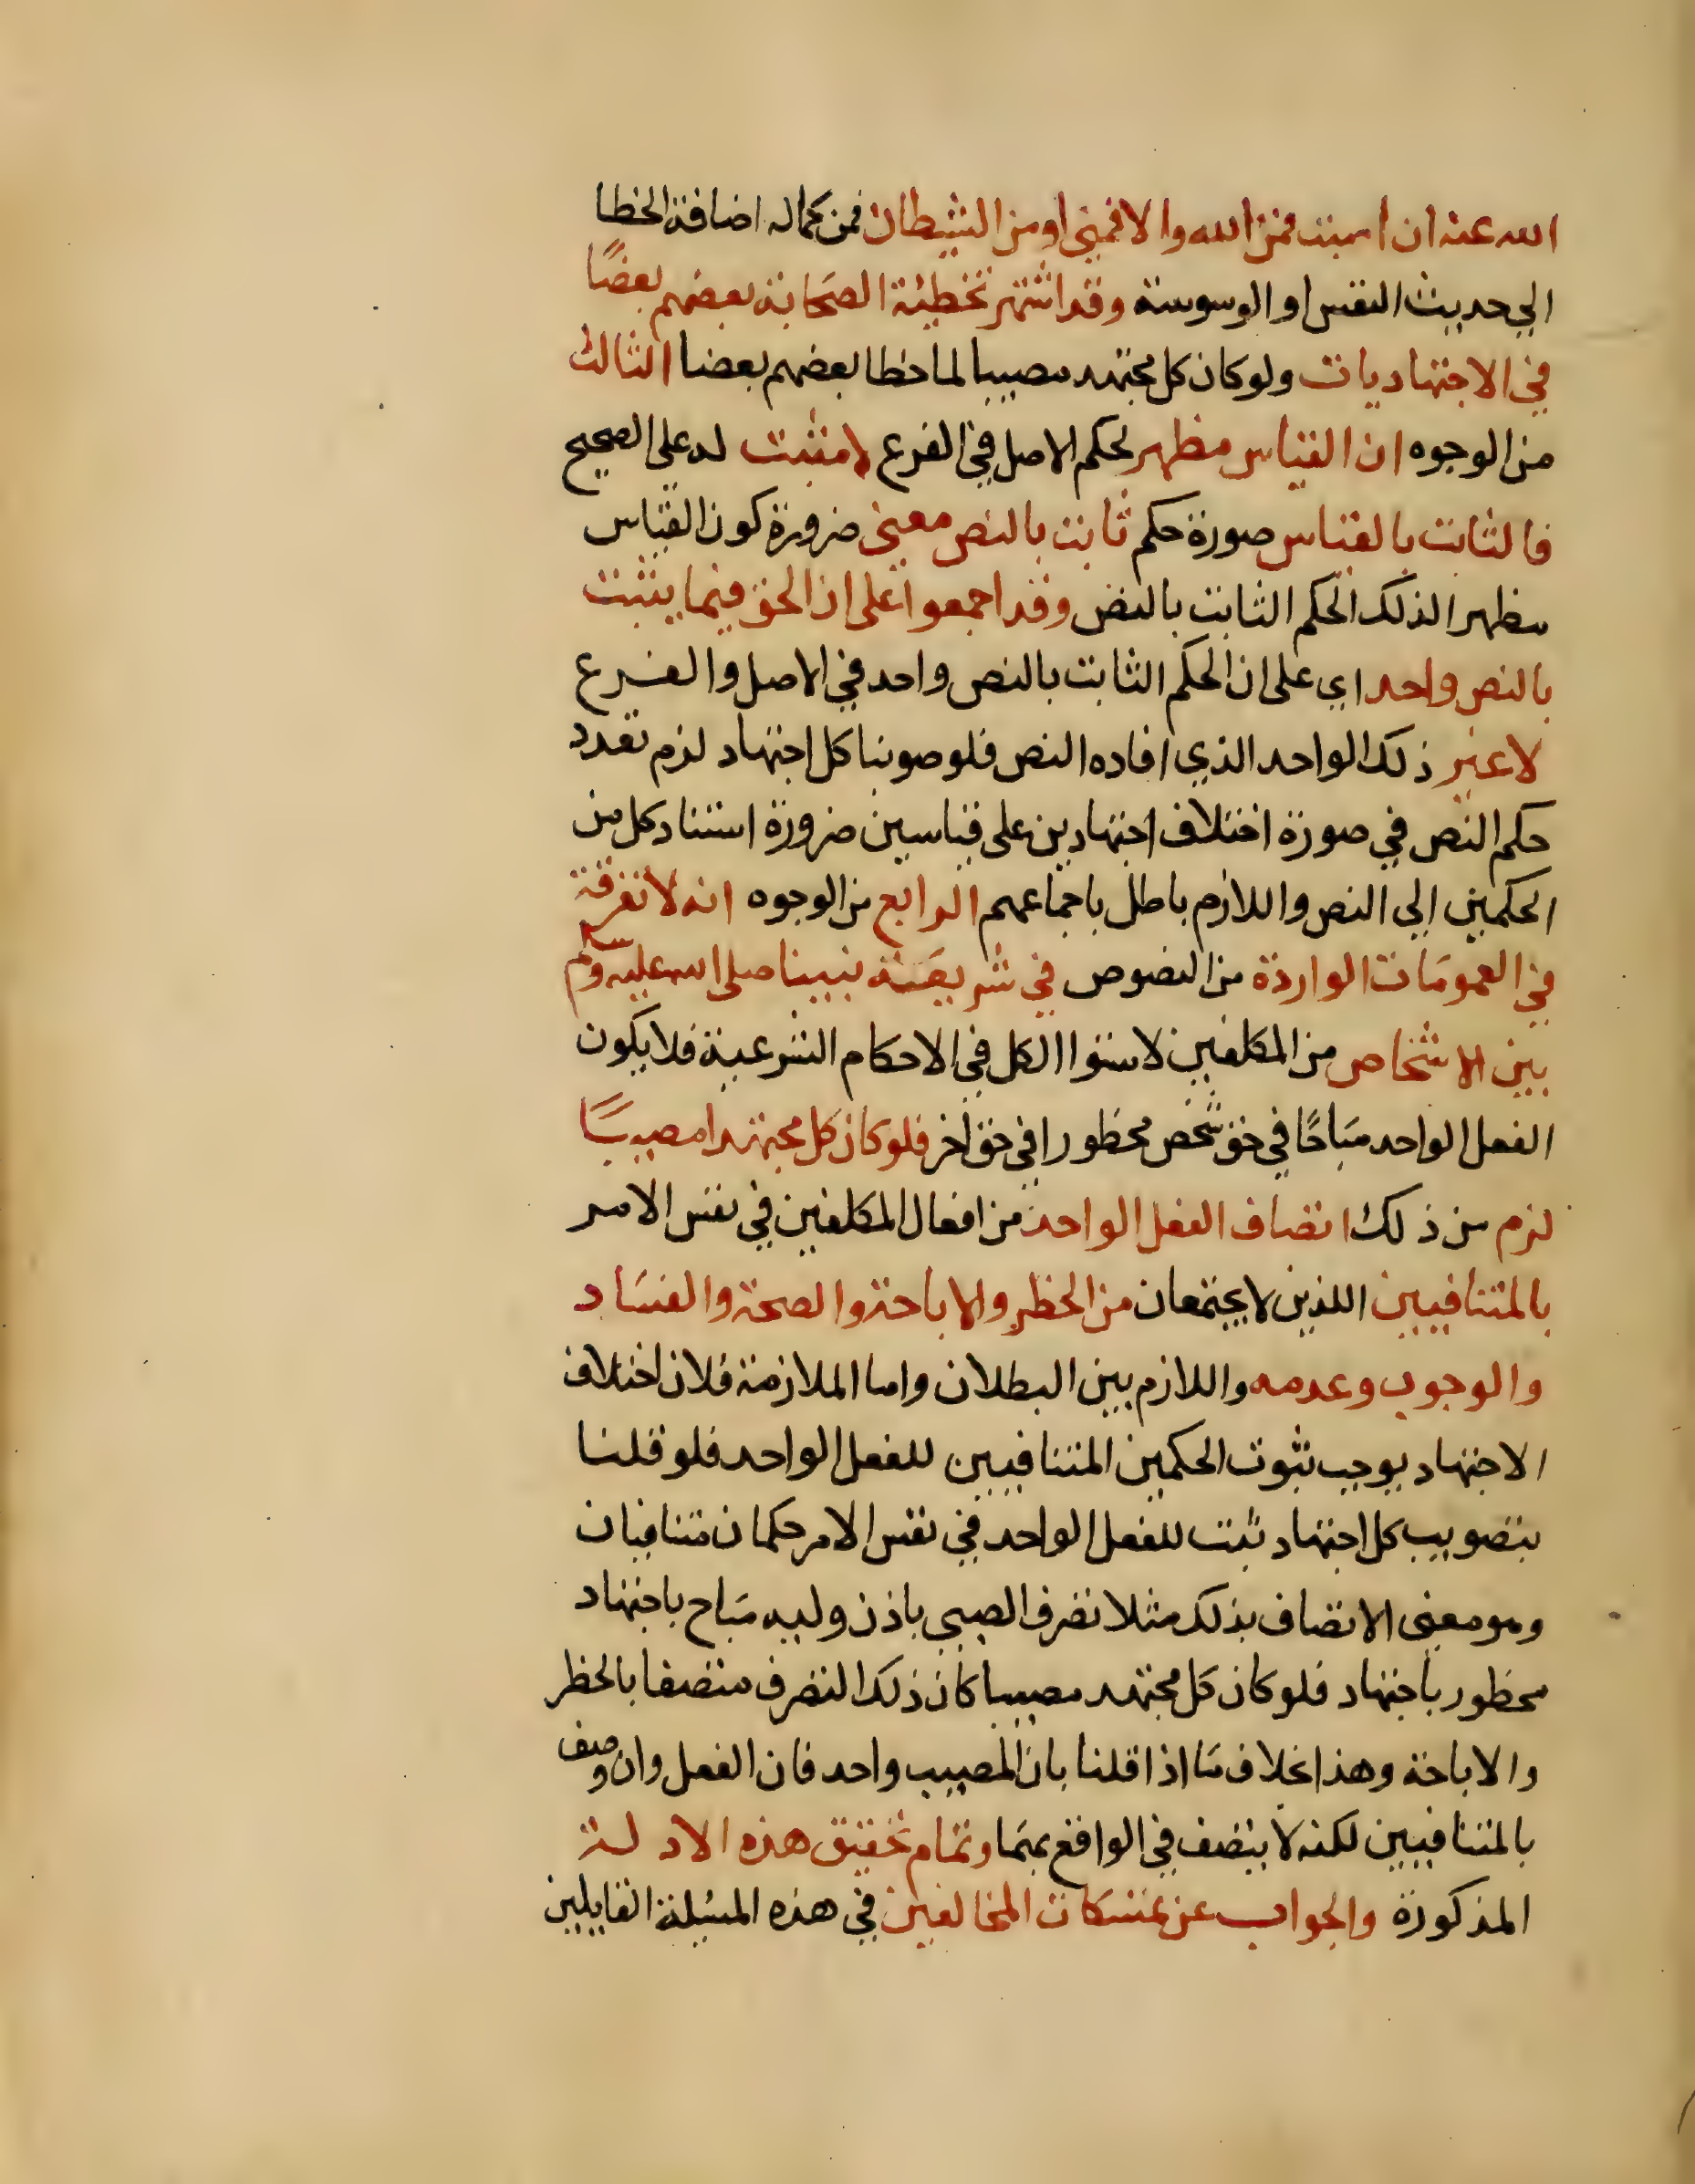 الله عنه ان اصبت فمن الله والا فمني او من الشيطان فمن كماله اضافة الخطا
الي حديث النفس او الوسوسة وقد اشتهر تخطئة الصحابة بعضهم بعضًا
في الاجتهاديات ولو كان كل مجتهد مصيبا لما خطا بعضهم بعضا الثالث
من الوجوه ان القياس مظهر لحكم الاصل في الفرع لا مثبت له على الصحيح
فالثابت بالقياس صورة حكم ثابت بالنص معنى ضرورة كون القياس
مظهرا لذلك الحكم الثابت بالنص وقد اجمعوا على ان الحق فيما يثبت
بالنص واحد اي على ان الحكم الثابت بالنص واحد في الاصل والفرع
لا غير ذلك الواحد الذي افاده النص فلو صوبنا كل اجتهاد لزم تعدد
حكم النص في صورة اختلاف اجتهادين على قياسين ضرورة استناد كل من
الحكمين الى النص واللازم باطل باجماعهم الرابع من الوجوه انه لا تفرقة
في العمومات الواردة من النصوص في شريعة نبينا صلى الله عليه وسلم
بين الاشخاص من المكلفين لاستوا الكل في الاحكام الشرعية فلا يكون
الفعل الواحد مباحًا في حق شخص محظورا في حق اخر فلو كان كل مجتهدا مصيبًا
لزم من ذلك اتصاف الفعل الواحد من افعال المكلفين في نفس الامر
بالمتنافيين اللذين لا يجتمعان من الحظر والاباحة والصحة والفساد
والوجوب وعدمه واللازم بين البطلان واما الملازمة فلان اختلاف
الاجتهاد يوجب ثبوت الحكمين المتنافيين للفعل الواحد فلو قلنا
بتصويب كل اجتهاد ثبت للفعل الواحد في نفس الامر حكمان متنافيان
وهو معنى الاتصاف بذلك مثلا تصرف الصبي باذن وليه مباح باجتهاد
محظور باجتهاد فلو كان كل مجتهد مصيبا كان ذلك التصرف متصفا بالحظر
والاباحة وهذا بخلاف ما اذا قلنا بان المصيب واحد فان الفعل وان وصف
بالمتنافيين لكنه لا يتصف في الواقع بهما وتمام تحقيق هذه الادلة
المذكورة والجواب عن تمسكات المخالفين في هذه المسئلة القايلين